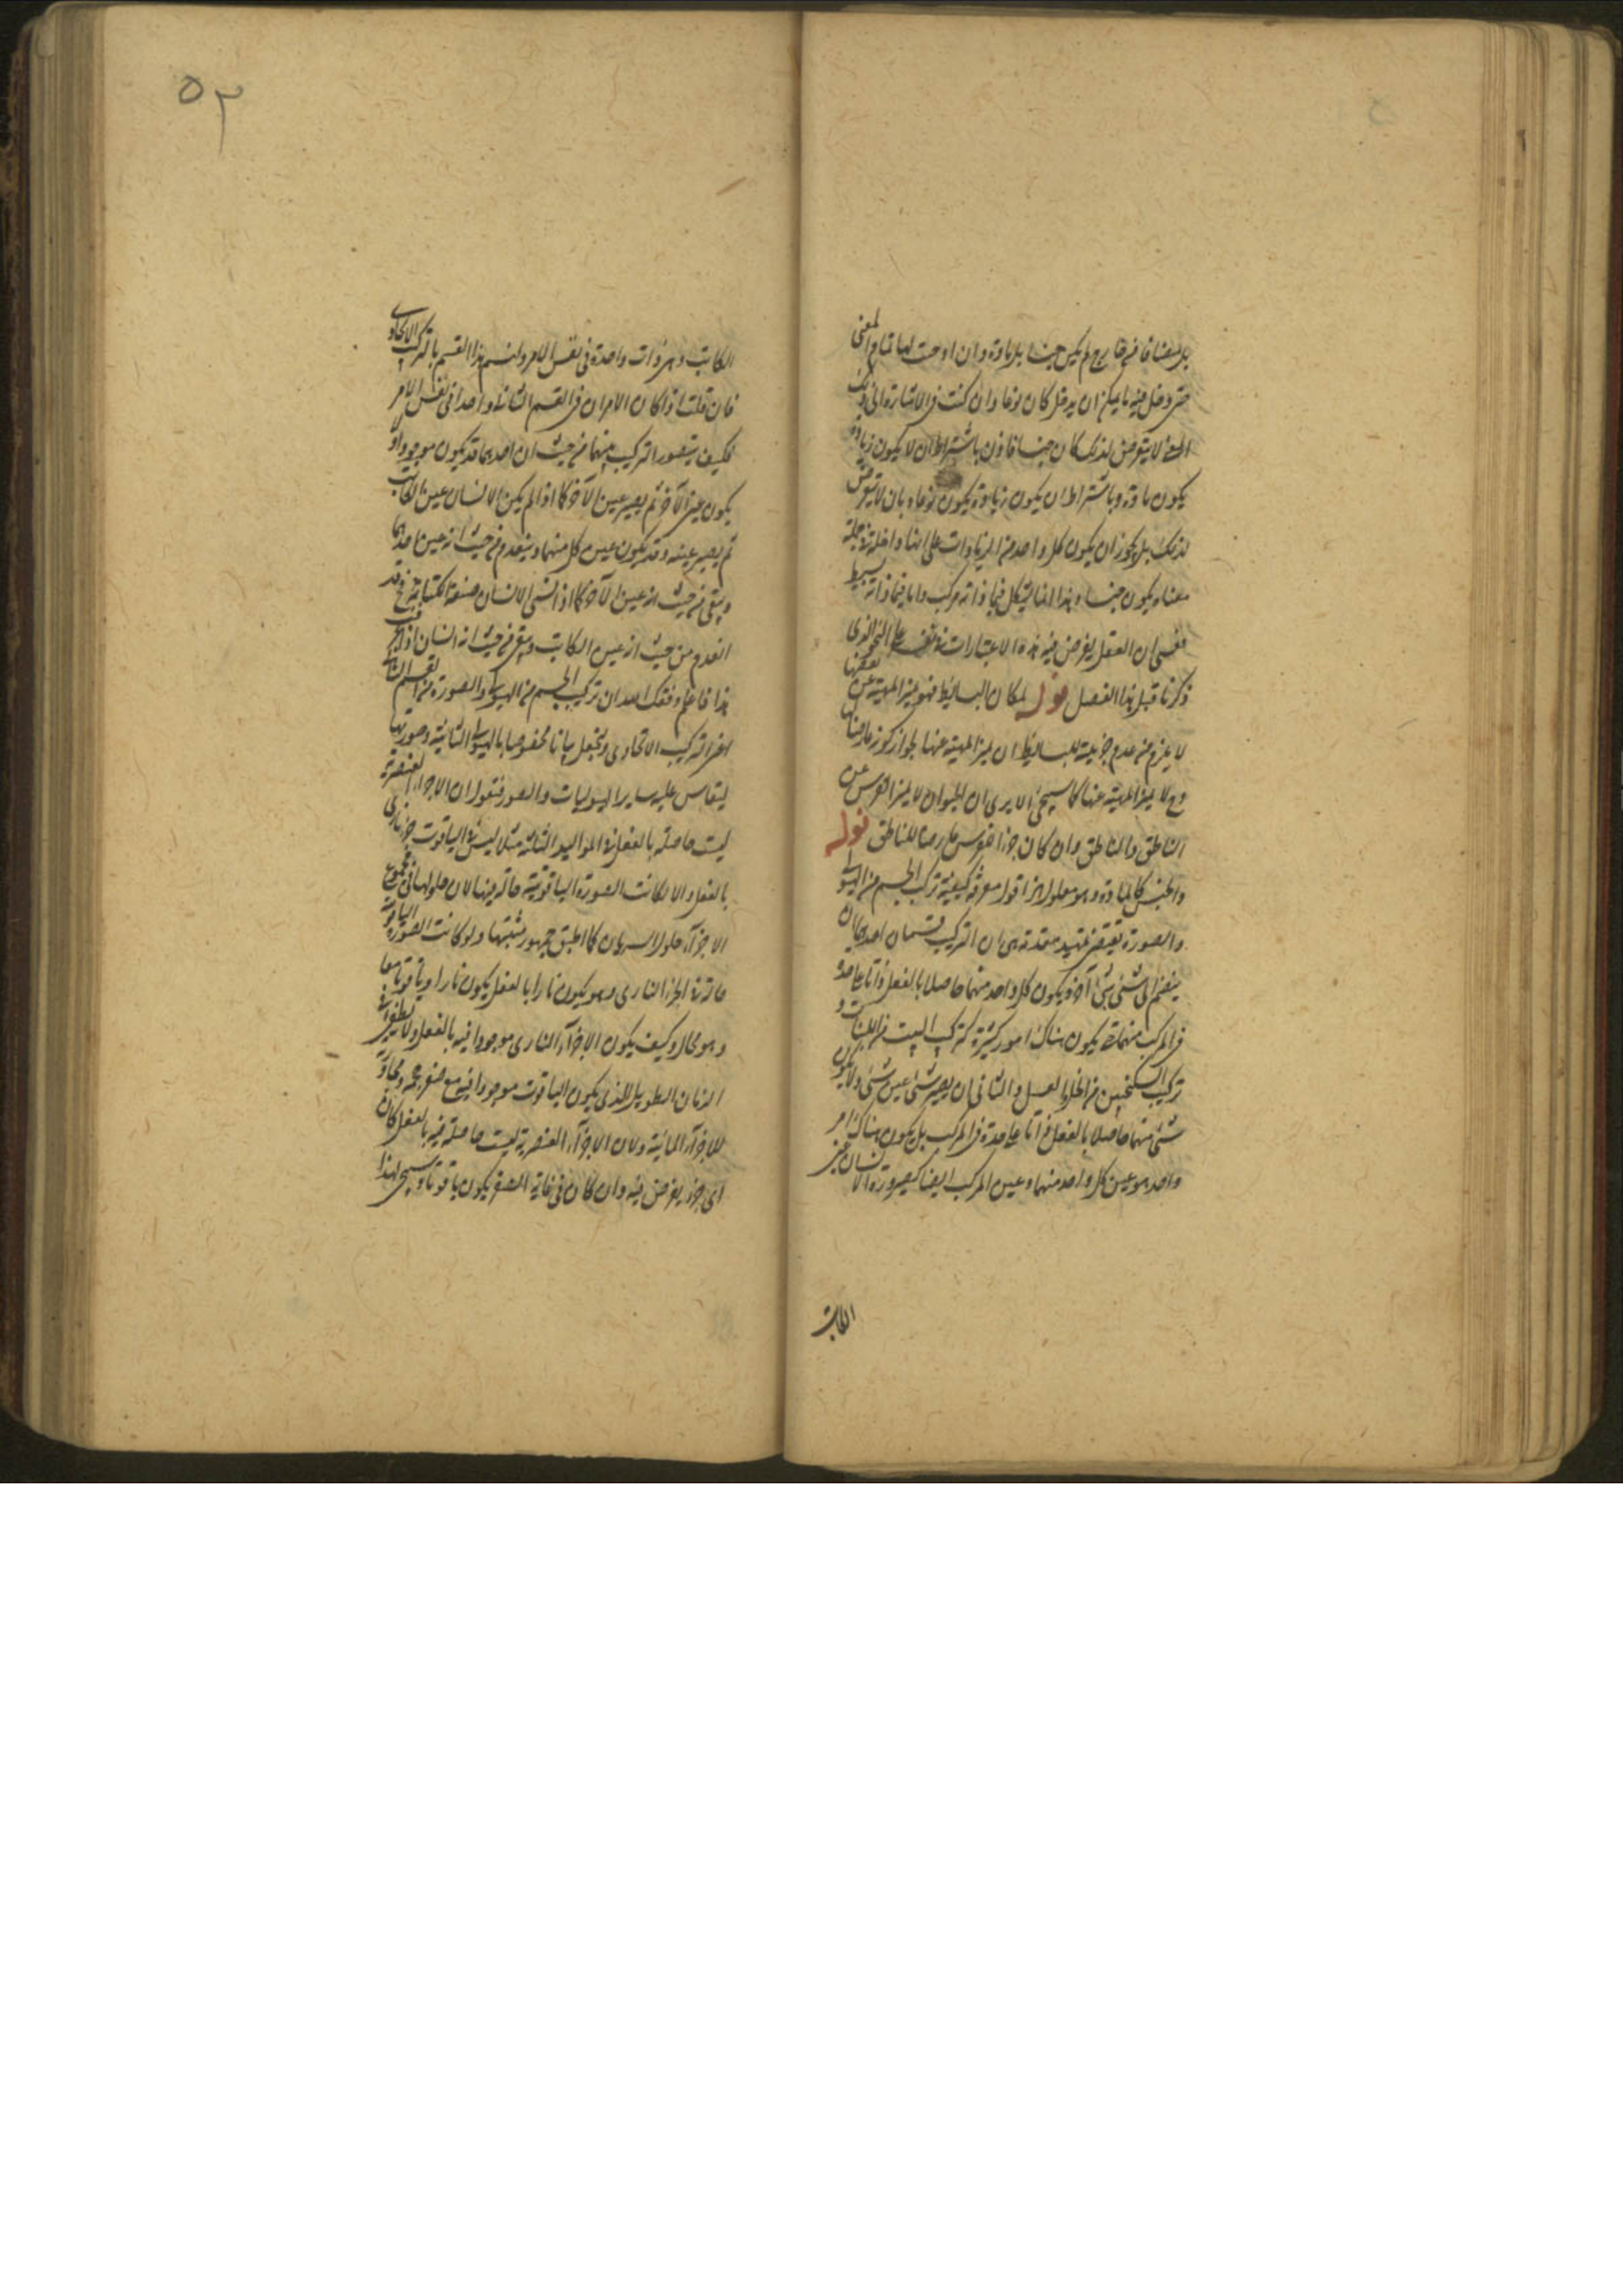 بل مضافا من خارج لم يكن جنسا بل مادة وان اوجبت لها تمام المعنى
حتى دخل فيه ما يمكن ان يدخل كان نوعا وان كنت فى الاشارة الى ذلك
المعنى لا تتعرض لذلك كان جنسا فاذن باشتراط ان لا يكون زيادة
يكون مادة وباشتراط ان يكون زيادة يكون نوعا وبان لا تتعرض
لذلك بل يجوز ان يكون كل واحد من الزيادات على انها داخلة فى جملة
معناه يكون جنسا وهذا انما يشكل فيما ذاته مركب واما فيما ذاته بسيط
فعسى ان العقل يفرض فيه هذه الاعتبارات فى نفسه على النحو الذى
ذكرنا قبل هذا الفصل قوله لمكان البسائط فهو يميز المهية عن بعضها
لا يلزم من عدم جزئيته للبسائط ان يميز المهية عنها لجواز كونه عارضا لها
وح لا يميز المهية عنها كما سيجئ الا يرى ان الحيوان لا يميز الفرس عن
الناطق والناطق وان كان جزء الفرس عارضا للناطق قوله
والجنس كالمادة وهو معلول اقول معرفة كيفية تركب الجسم من الهيولى
والصورة تقتضى تمهيد مقدمة هى ان التركيب قسمان احدهما ان
ينضم الى شئ شئ آخر ويكون كل واحد منهما حاصلا بالفعل ذاتا على حدة
فى المركب منهما حتى يكون هناك امور كثيرة كتركب البيت من اللبنات و
تركيب السكنجبين من الخل والعسل والثانى ان يصير شئ عين شئ ولا يكون
شئ منهما حاصلا بالفعل ذاتا على حدة فى المركب بل يكون هناك امر
واحد هو عين كل واحد منهما وعين المركب ايضا كصيرورة الانسان عين
الكاتب
٥٣
الكاتب وهى ذات واحدة فى نفس الامر ولنسم هذا القسم بالتركيب الاتحادى
فان قلت اذا كان الامران فى القسم الثانى واحدا فى نفس الامر
فكيف يتصور التركيب بينهما من حيث ان احدهما قد يكون موجودا ولا
يكون عين الآخر ثم يصير عين الآخر كما اذا لم يكن الانسان عين الكاتب
ثم يصير عينه وقد يكون عين كل منهما وينعدم من حيث انه عين احدهما
ويبقى من حيث انه عين الآخر كما اذا نسى الانسان صنعة الكتابة فح قد
انعدم من حيث انه عين الكاتب وبقى من حيث انه انسان اذا
هذا فاعلم وفقك الله ان تركيب الجسم من الهيولى والصورة من القسم الثانى
اعنى التركيب الاتحادى ونجعل بياننا مخصوصا بالهيولى الثانية وصورتها
ليقاس عليه ساير الهيوليات والصور فنقول ان الاجزاء العنصرية
ليست حاصلة بالفعل فى المواليد الثلثة مثلا ليس فى الياقوت جزء نارى
بالفعل والا لكانت الصورة الياقوتية حالة فيها لان حلولها فى مجموع
الاجزآء حلول السريان كما اطبق جمهور مثبتيها ولو كانت الصورة الياقوتية
حالة فى الجزء النارى وهو يكون نارا بالفعل يكون نارا وياقوتا معا
وهو محال وكيف يكون الاجزآء النارى موجودا فيه بالفعل ولا ينطفى فى
الزمان الطويل الذى يكون الياقوت موجودا فيه مع صغر حجمه ومجاورته
للاجزآء المائية ولان الاجزآء العنصرية ليست حاصلة فيه بالفعل كان
اى جزء يفرض فيه وان كان فى غاية الصغر يكون ياقوتا ويسمى لهذا